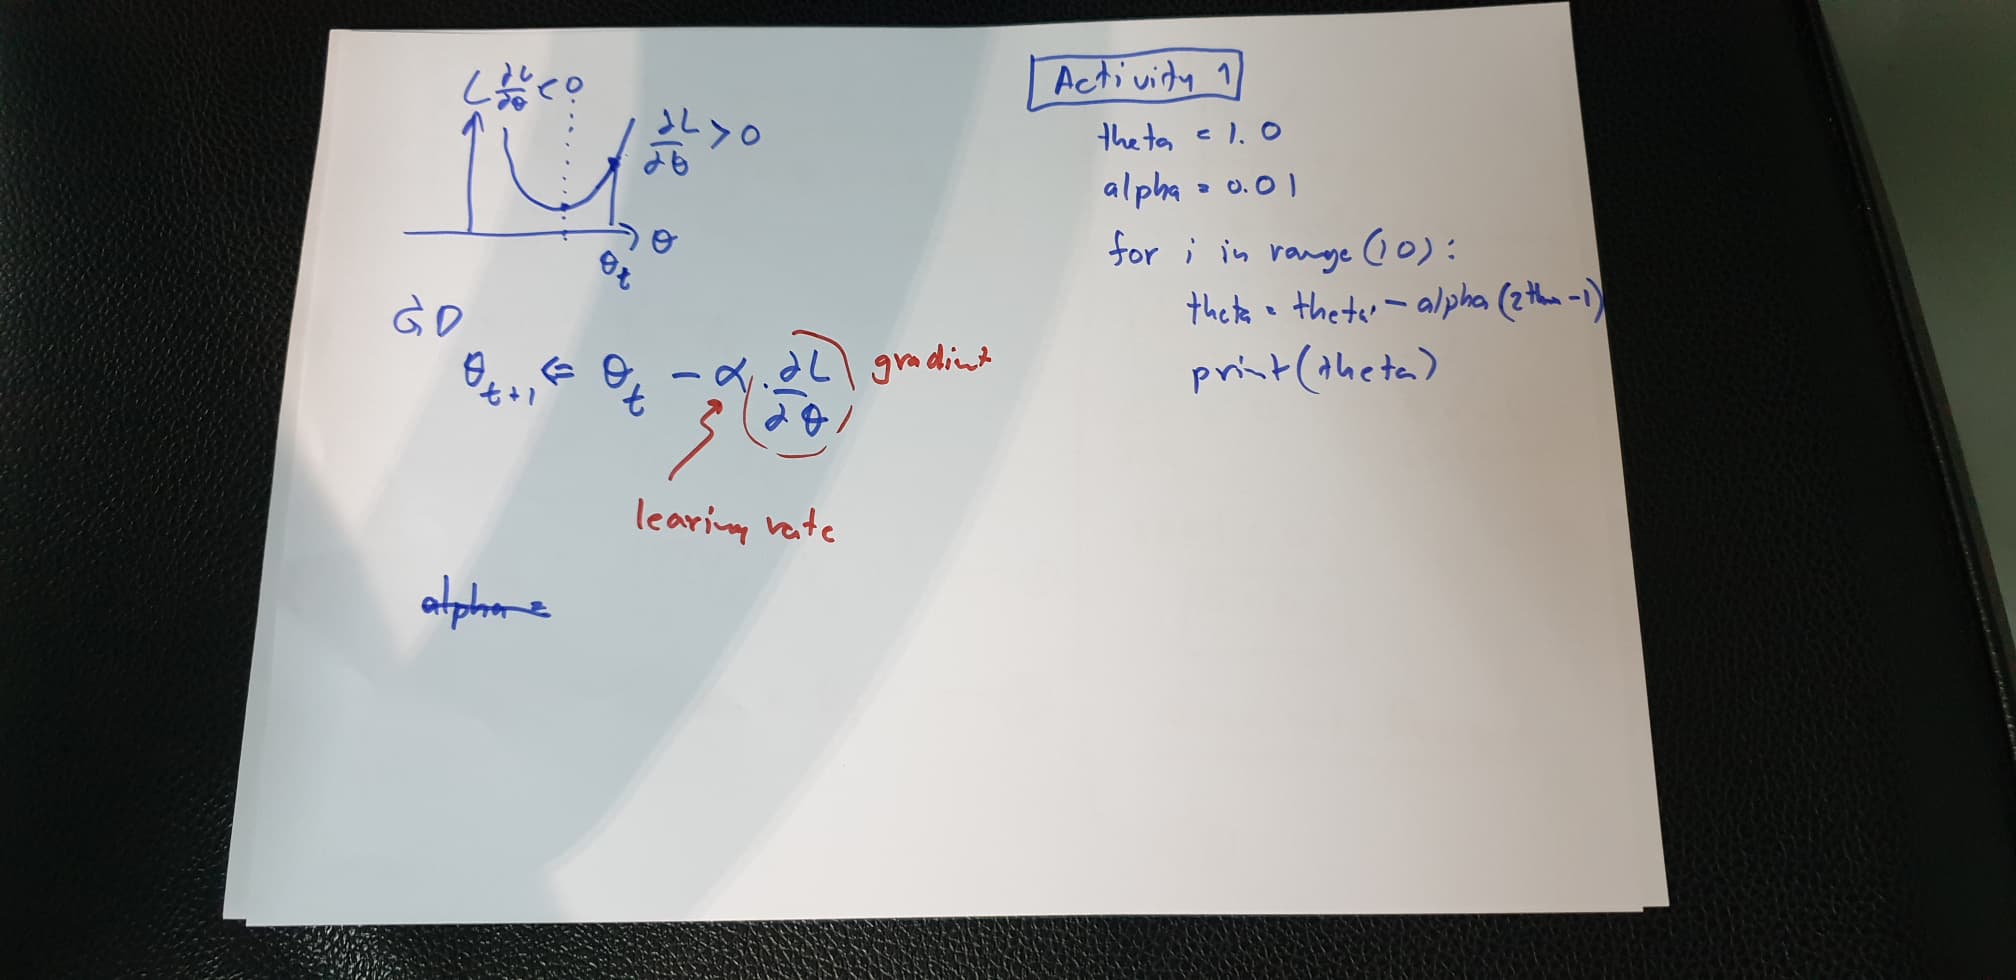 L ∂L/∂θ < 0
∂L/∂θ > 0
θ
θt
GD
θt+1 ⇐ θt - α · ∂L/∂θ gradint
learing rate
alpha =
Activity 1
theta = 1.0
alpha = 0.01
for i in range (10):
theta = theta - alpha ( -1)
print(theta)